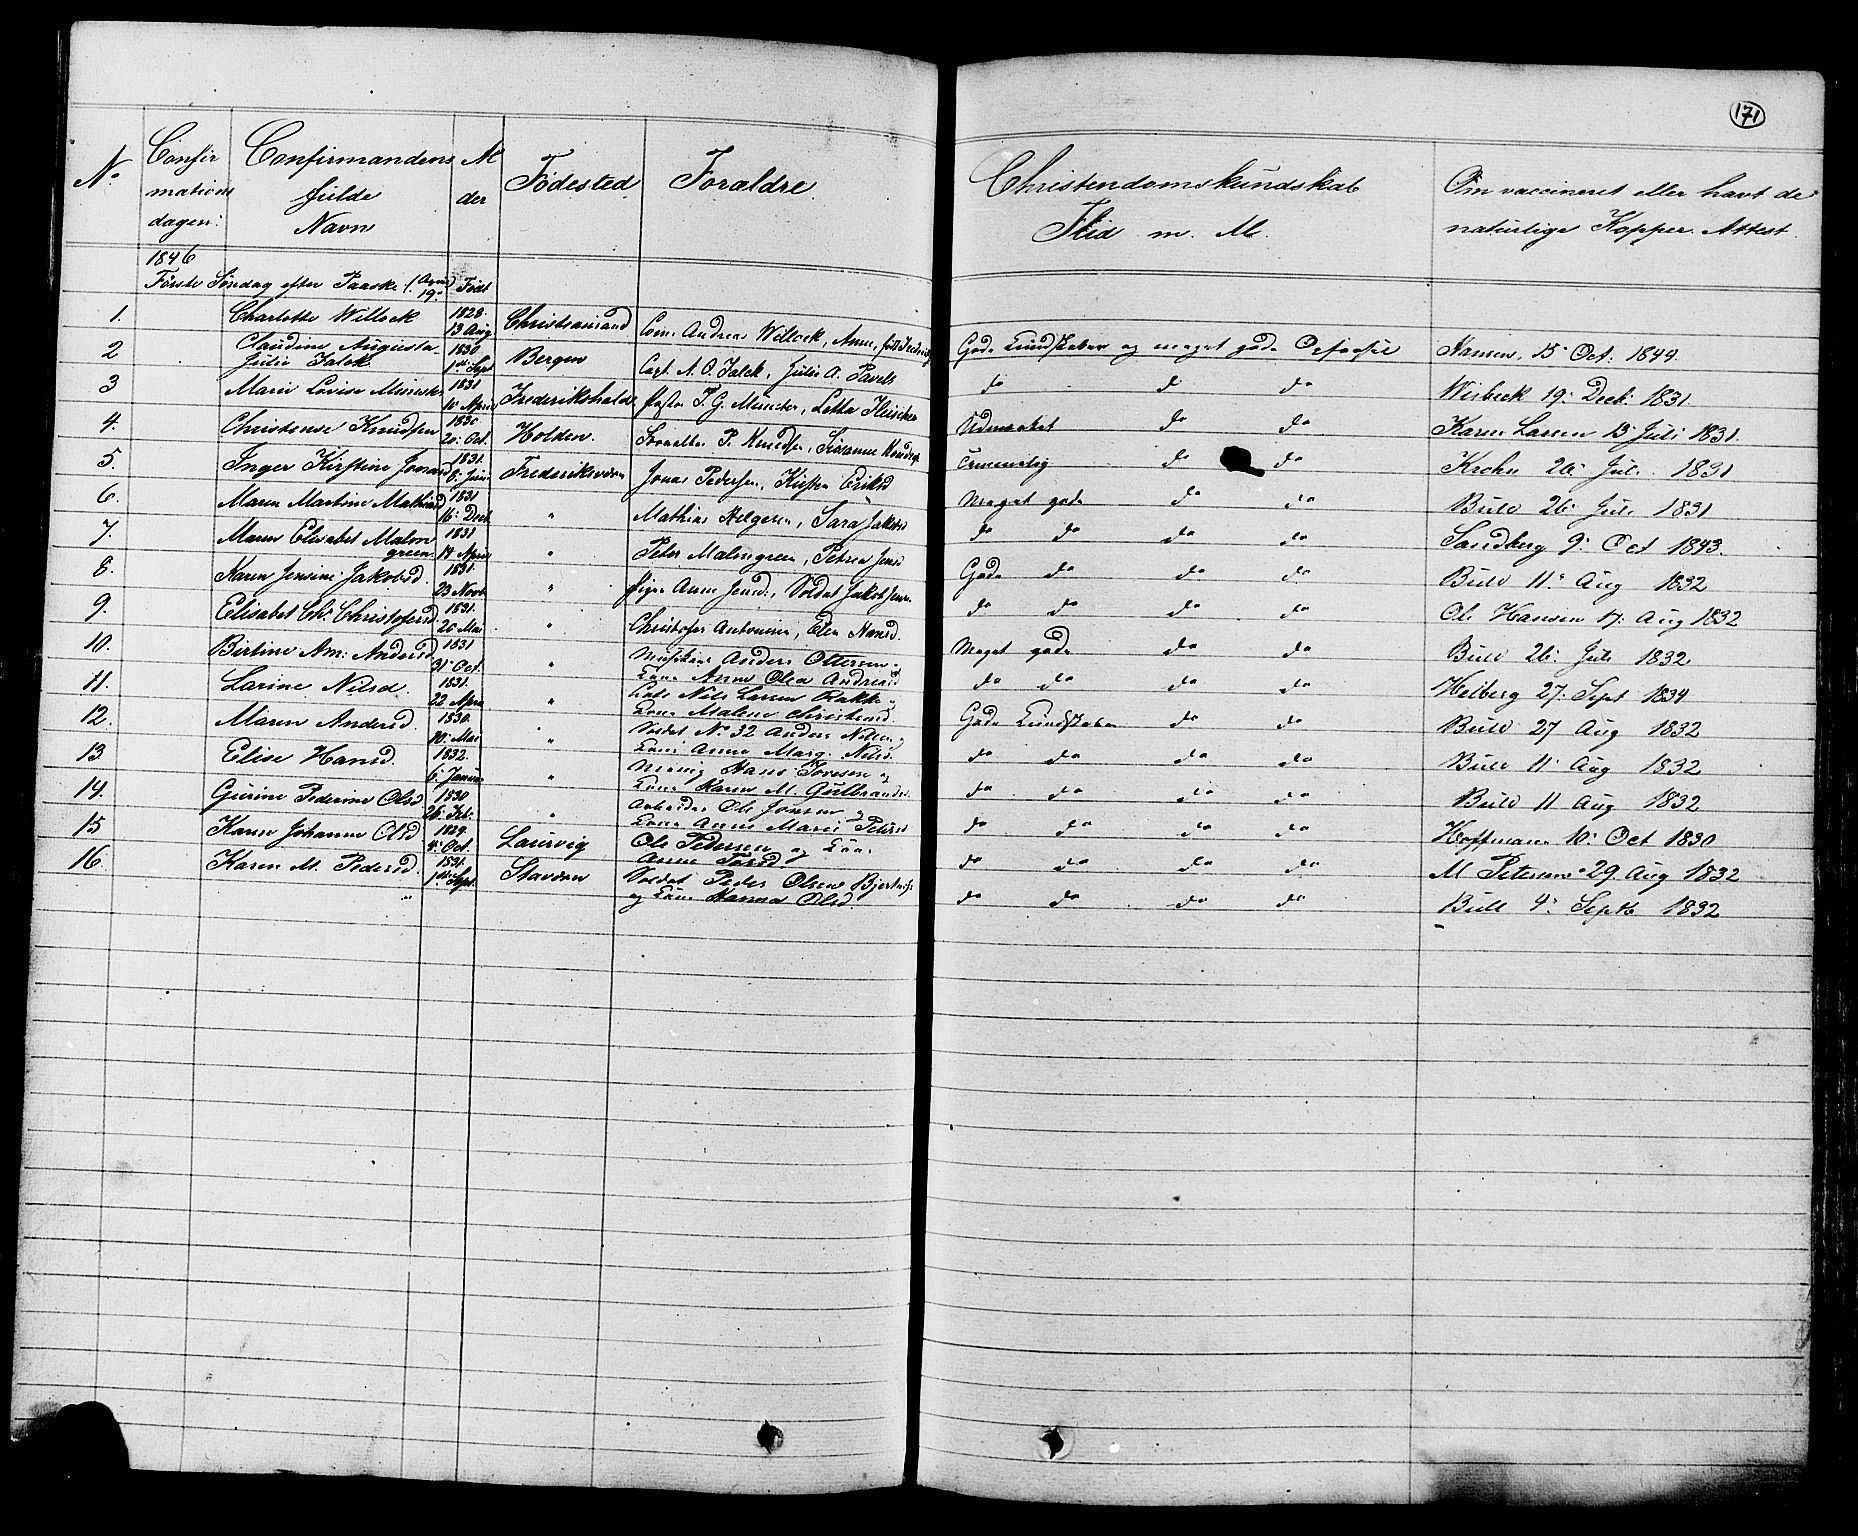 171
No Confirmationsdagen: Confirmandens fulde Navn Alder Födested Foraldre Christendomskundskab Flid m. M. Om vaccineret eller havt de naturlige Kopper. Attest.
1846
Förste Söndag efter Paaske (April 19: Födt
1. Charlotte Willock 1828 13 Aug Christiansand Andreas Willock, Anne, Gode Kundskaber og meget gode Hansen, 15 Oct. 1844.
2 Claudine Augusta Julie Falck 1830 1ste Sept Bergen Capt. A. O. Falck, Julie A. Pavels do do do Wisbeck 19: Decb: 1831.
3 Marie Lovise Münster 1831 10 April Frederikshald Pastor T. G. Münster, Letta Fleischer Udmærket do do Karen Larsen 13 Juli 1831.
4. Christense Knudsen 1830 20: Oct. Holden. P. Knudsen, do do Krohn 26 Juli 1831
5. Inger Kirstine Jonasd 1831. 8: Juni Frederiksværn Jonas Pedersen, Kirsten Eriksd Meget gode do do Bull 26 Juli 1831
6. Maren Martine Mathiasd 1831 16: Decb " Mathias Helgesen, Sara Jakobsd do do do do Sandberg 9: Oct 1843.
7. Maren Elisabet Malmgreen. 1831 14 April " Peter Malmgreen, Petrea Jensd Gode do do do Bull 11: Aug 1832
8. Karen Jensine Jakobsd. 1831. 23 Novb " Pigen Anne Jensd:, Soldat Jakob Jensen do do do do Ole Hansen 17. Aug 1832
9. Elisabet Ch: Christofersd. 1831. 20 Mai " Christofer Antonisen, Elen Hansd. Meget gode do do Bull 26: Juli 1832
10. Birtine Am: Andersd 1831 31: Oct. " Anders Ottersen Kone Anne Olea Andreasd do do do do Heiberg 27: Sept 1834
11. Larine Nilsd. 1831. 22 April " Nils Larsen Bakke Kone Malene Christensd Gode Kundskaber do do Bull 27 Aug 1832
12. Maren Andersd. 1830. 10: Mai " Soldat No 32 Anders Nilsen Kone Anne Marg: Nilsd. do do do do Bull 11: Aug 1832
13. Elise Hansd. 1832. 6: Januar " Hans Iversen og Kone Karen M. Gulbrandsd. do do do do Bull 11 Aug 1832
14. Gurine Pederine Olsd 1830 26: Feb: " Arbeider Ole Jonsen og Kone Anne Marie Petersd do do do do Hoffmann 10: Oct 1830
15 Karen Johanne Olsd 1829. 4: Oct. Laurvig Ole Pedersen og Kone Anne do do do do M. Petersen 29. Aug 1832
16. Karen M. Pedersd. 1831. 1ste Sept. Staværn Soldat Peder Olsen og Kone Hanna Olsd. do do do do Bull 4: Septb 1832